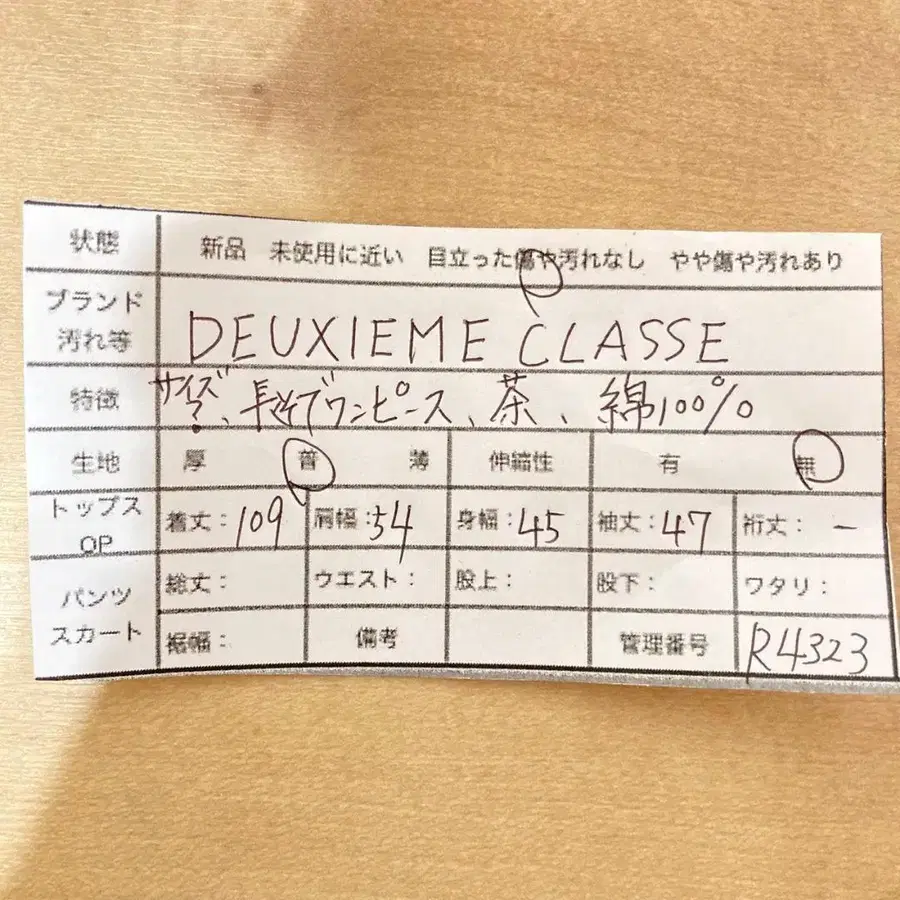 状態 新品 未使用に近い 目立った傷や汚れなし やや傷や汚れあり
ブランド
汚れ等 DEUXIEME CLASSE
特徴 サイズ?、長そでワンピース、茶、綿100%
生地 厚 普 薄 伸縮性 有 無
トップス
OP 着丈:109 肩幅:54 身幅:45 袖丈:47 裄丈:ー
パンツ
スカート 総丈: ウエスト: 股上: 股下: ワタリ:
裾幅: 備考 管理番号 R4323